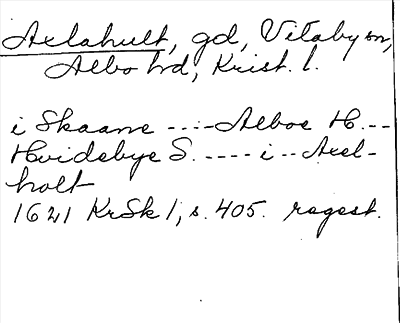 Axlahult, gd, Vitaby sn,
Albo hd, Krist. l.
i Skaane --:- Alboe H. --
Hvidebye S. ----- i -- Axel-
holt
1621 KrSk 1, s. 405. regest.